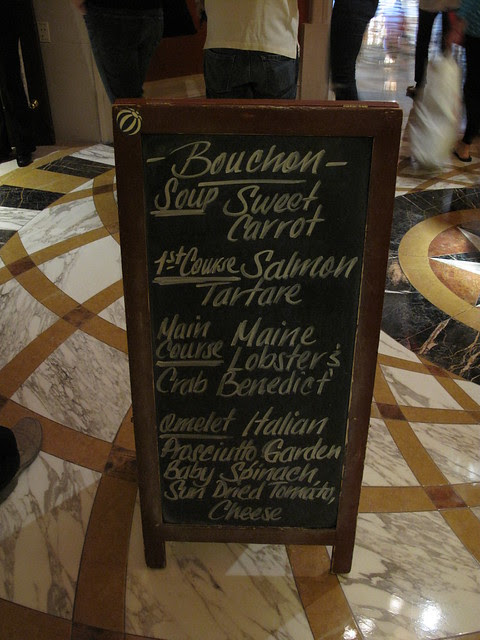 - Bouchon -
Soup Sweet
Carrot
1st Course Salmon
Tartare
Main Maine
Course Lobster &
Crab Benedict
Omelet Italian
Prasciutto Garden
Baby Spinach,
Sun Dried Tomato,
Cheese